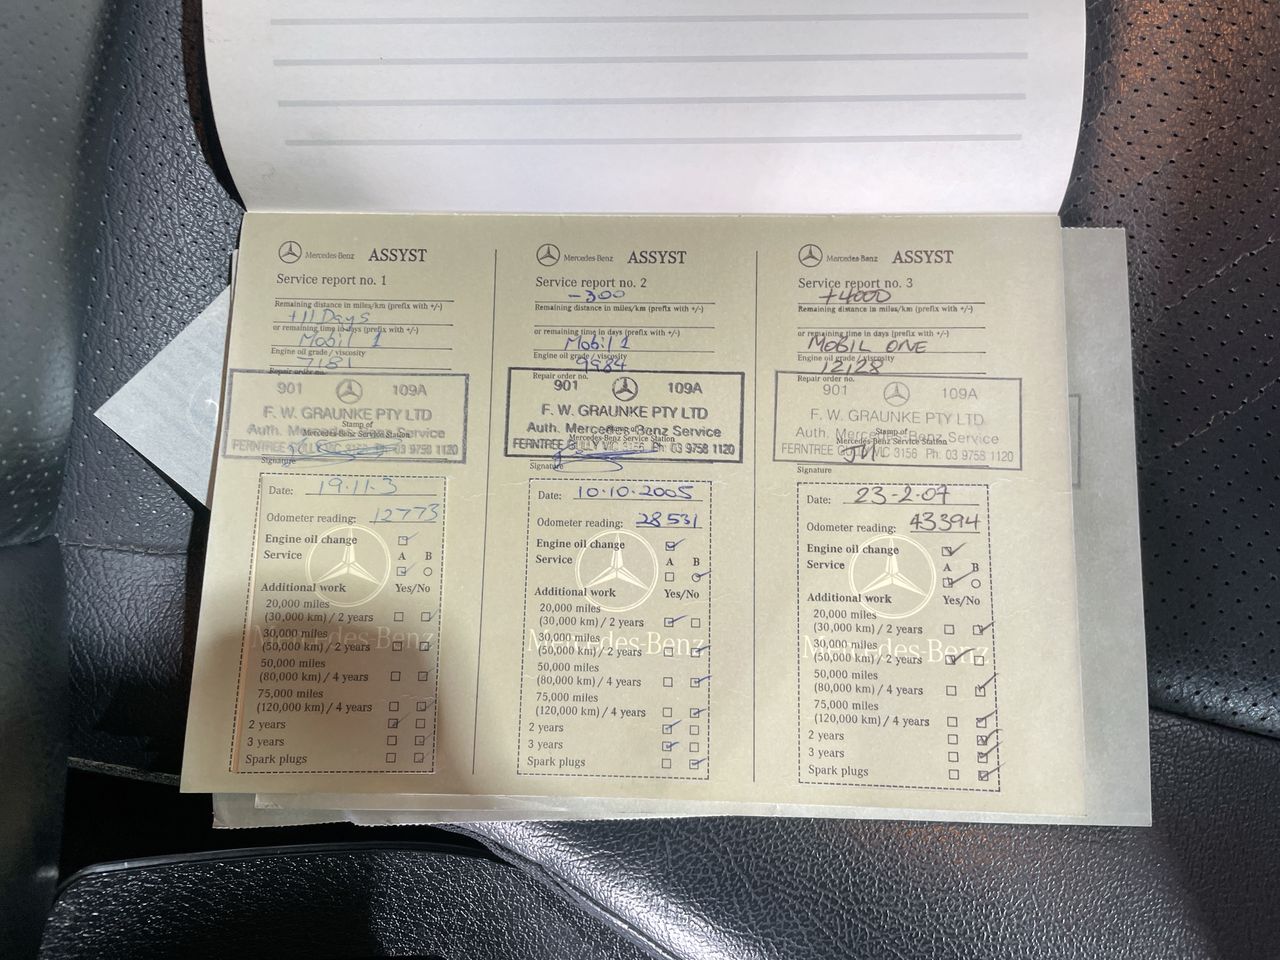 Mercedes-Benz ASSYST
Service report no. 1
Remaining distance in miles/km (prefix with +/-)
+11 Days
or remaining time in days (prefix with +/-)
Mobil 1
Engine oil grade / viscosity
7181
Repair order no.
901 109A
F. W. GRAUNKE PTY LTD
Stamp of
Auth. Mercedes-Benz Service
Mercedes-Benz Service Station
FERNTREE GULLY VIC 3156 Ph: 03 9758 1120
Signature
Date: 19.11.3
Odometer reading: 12773
Engine oil change
Service A B
Additional work Yes/No
20,000 miles
(30,000 km) / 2 years
30,000 miles
(50,000 km) / 2 years
50,000 miles
(80,000 km) / 4 years
75,000 miles
(120,000 km) / 4 years
2 years
3 years
Spark plugs
Mercedes-Benz
Mercedes-Benz ASSYST
Service report no. 2
-300
Remaining distance in miles/km (prefix with +/-)
or remaining time in days (prefix with +/-)
Mobil 1
Engine oil grade / viscosity
9984
Repair order no.
901 109A
F. W. GRAUNKE PTY LTD
Stamp of
Auth. Mercedes-Benz Service
Mercedes-Benz Service Station
FERNTREE GULLY VIC 3156 Ph: 03 9758 1120
Signature
Date: 10.10.2005
Odometer reading: 28531
Engine oil change
Service A B
Additional work Yes/No
20,000 miles
(30,000 km) / 2 years
30,000 miles
(50,000 km) / 2 years
50,000 miles
(80,000 km) / 4 years
75,000 miles
(120,000 km) / 4 years
2 years
3 years
Spark plugs
Mercedes-Benz
Mercedes-Benz ASSYST
Service report no. 3
+4000
Remaining distance in miles/km (prefix with +/-)
or remaining time in days (prefix with +/-)
MOBIL ONE
Engine oil grade / viscosity
12128
Repair order no.
901 109A
F. W. GRAUNKE PTY LTD
Stamp of
Auth. Mercedes-Benz Service
Mercedes-Benz Service Station
FERNTREE GULLY VIC 3156 Ph: 03 9758 1120
Signature
Date: 23-2-07
Odometer reading: 43394
Engine oil change
Service A B
Additional work Yes/No
20,000 miles
(30,000 km) / 2 years
30,000 miles
(50,000 km) / 2 years
50,000 miles
(80,000 km) / 4 years
75,000 miles
(120,000 km) / 4 years
2 years
3 years
Spark plugs
Mercedes-Benz